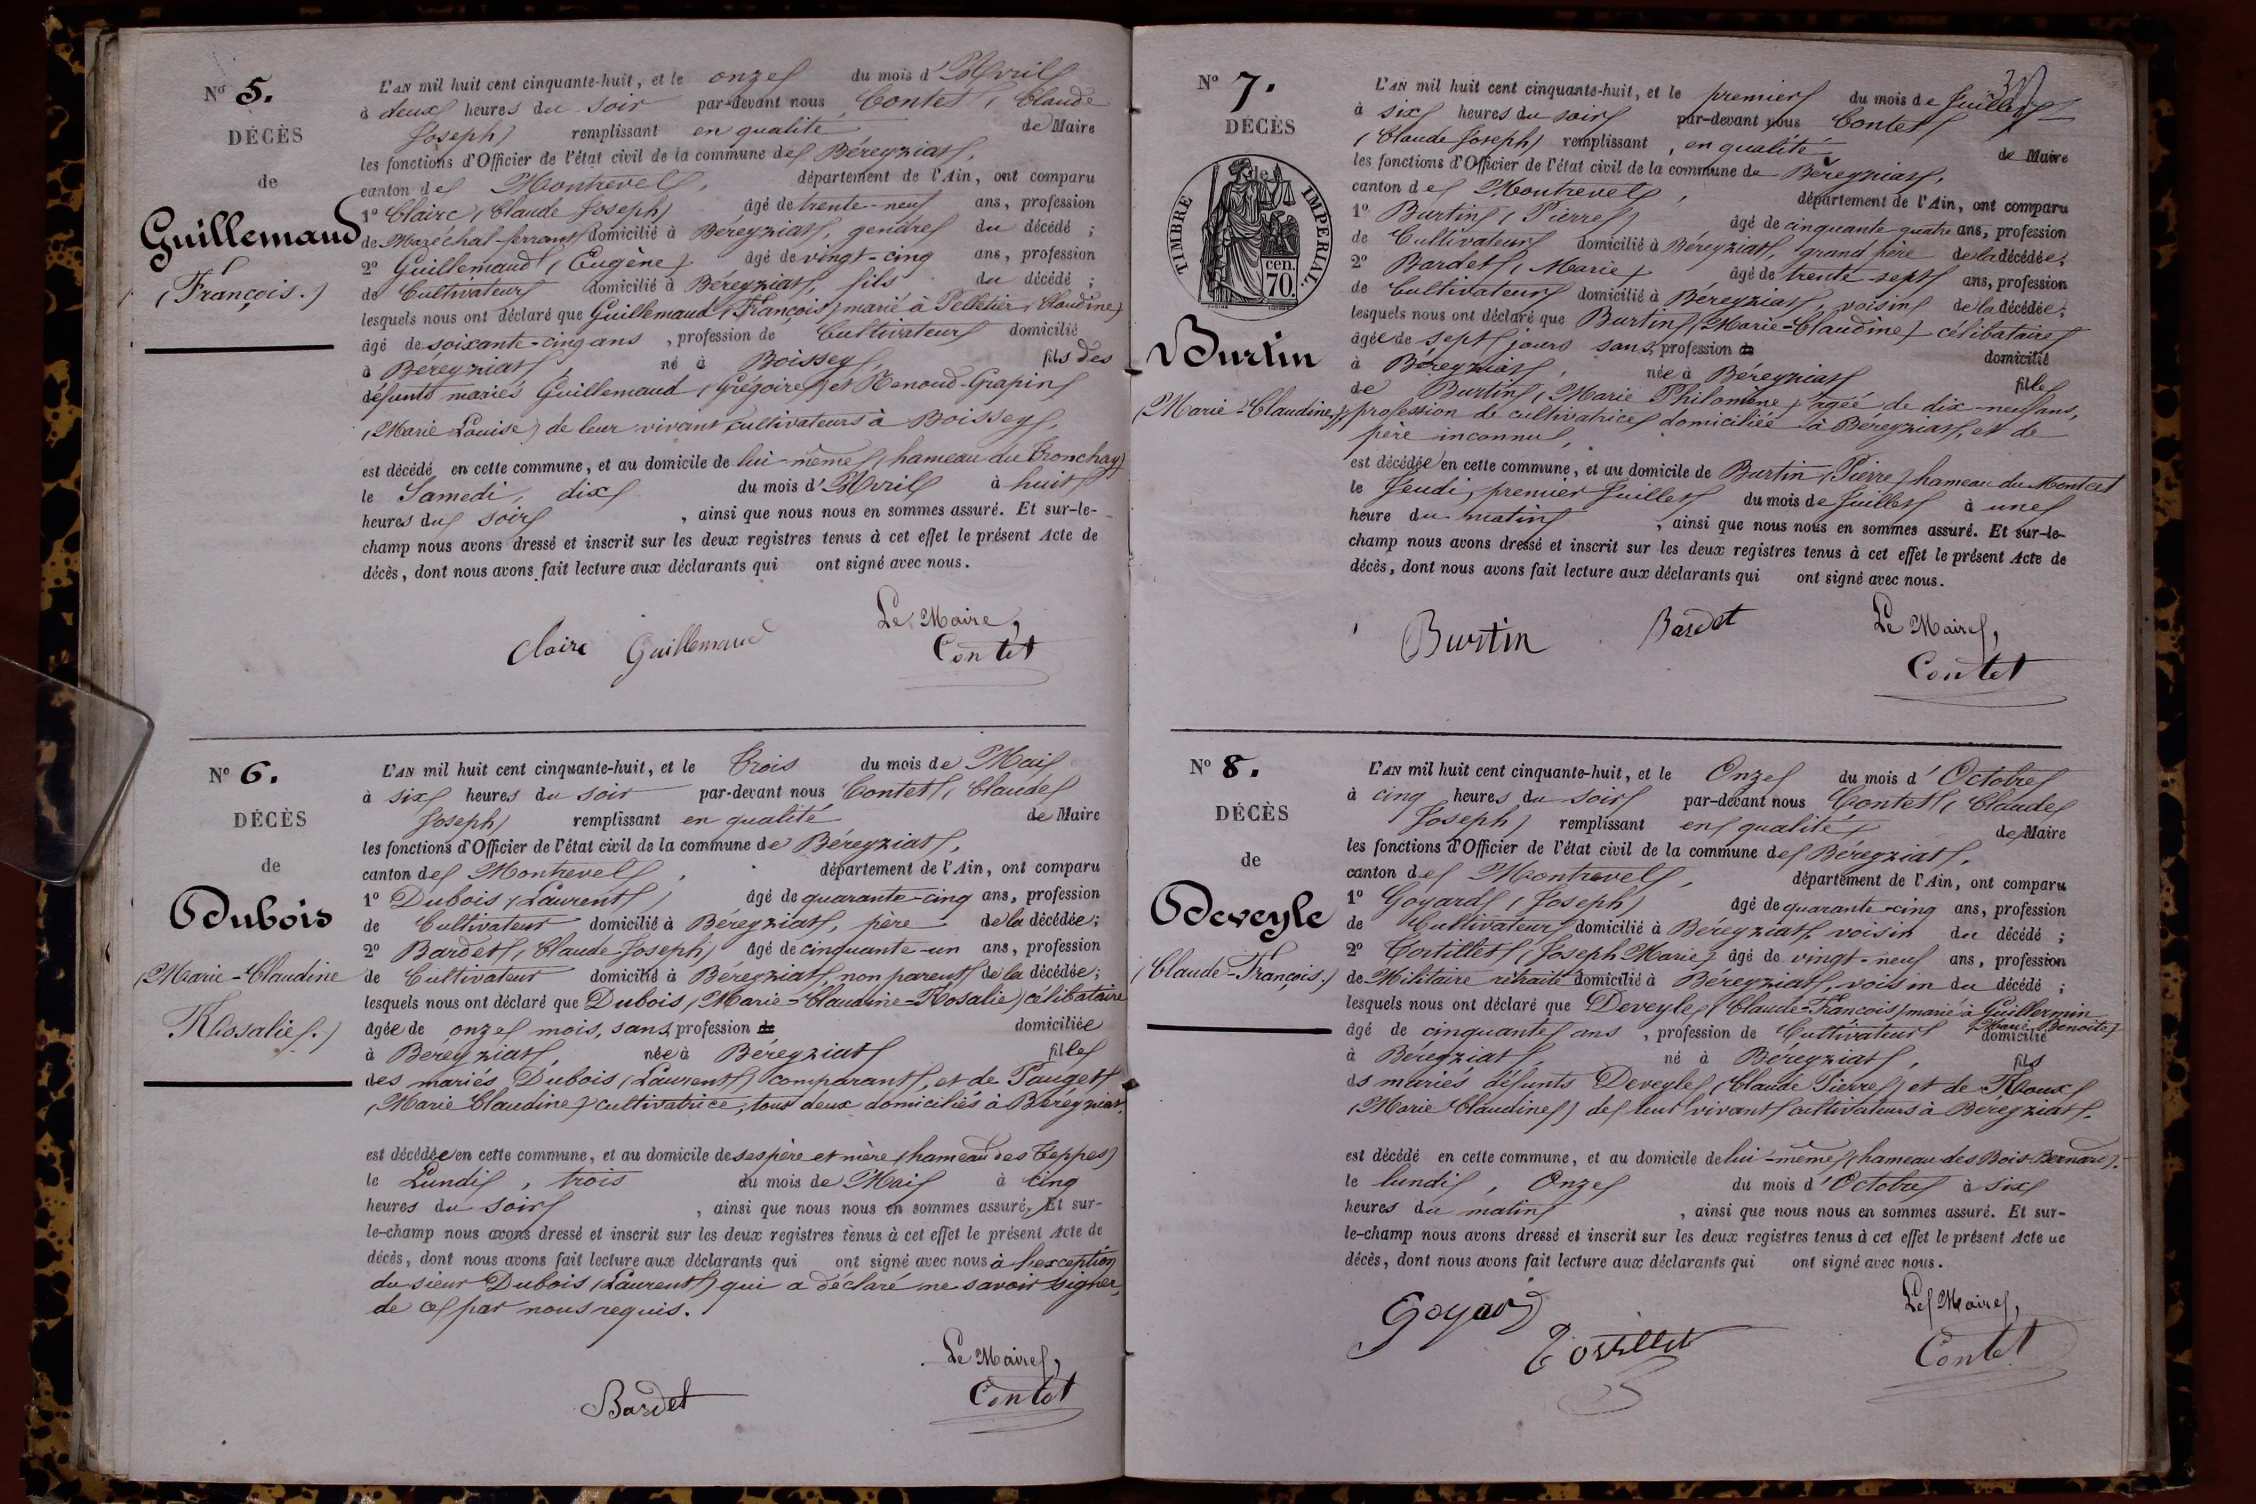 Nº 5.
DÉCÈS
de
Guillemaud
(François.)
L'AN mil huit cent cinquante-huit, et le onze du mois d'Avril
à deux heures du soir par-devant nous Contet (Claude
Joseph) remplissant en qualité de Maire
les fonctions d'Officier de l'état civil de la commune de Béreyziat,
canton de Montrevel, département de l'Ain, ont comparu
1º Claire (Claude Joseph) âgé de trente-neuf ans, profession
de Maréchal-ferrant domicilié à Béreyziat, gendre du décédé ;
2º Guillemaud (Eugène) âgé de vingt-cinq ans, profession
de Cultivateur domicilié à Béreyziat, fils du décédé ;
lesquels nous ont déclaré que Guillemaud (François) marié à Pelletier (Claudine)
âgé de soixante-cinq ans, profession de Cultivateur domicilié
à Béreyziat, né à Boissey, fils des
défunts mariés Guillemaud (Grégoire) et Renoud-Grapin
(Marie Louise) de leur vivant cultivateurs à Boissey,
est décédé en cette commune, et au domicile de lui-même (hameau du Tronchay)
le Samedi, dix du mois d'Avril à huit
heures du soir, ainsi que nous nous en sommes assuré. Et sur-le-
champ nous avons dressé et inscrit sur les deux registres tenus à cet effet le présent Acte de
décès, dont nous avons fait lecture aux déclarants qui ont signé avec nous.
Le Maire,
Claire Guillemaud Contet
Nº 6.
DÉCÈS
de
Dubois
(Marie-Claudine
Rosalie.)
L'AN mil huit cent cinquante-huit, et le trois du mois de Mai
à six heures du soir par-devant nous Contet (Claude
Joseph) remplissant en qualité de Maire
les fonctions d'Officier de l'état civil de la commune de Béreyziat,
canton de Montrevel, département de l'Ain, ont comparu
1º Dubois (Laurent) âgé de quarante-cinq ans, profession
de Cultivateur domicilié à Béreyziat, père de la décédée ;
2º Bardet (Claude Joseph) âgé de cinquante-un ans, profession
de Cultivateur domicilié à Béreyziat, non parent de la décédée ;
lesquels nous ont déclaré que Dubois (Marie-Claudine-Rosalie) célibataire
âgée de onze mois, sans profession de domiciliée
à Béreyziat, née à Béreyziat fille
des mariés Dubois (Laurent) comparant, et de Pauget
(Marie Claudine) cultivatrice, tous deux domiciliés à Béreyziat,
est décédée en cette commune, et au domicile de ses père et mère (hameau des Teppes)
le Lundi, trois du mois de Mai à cinq
heures du soir, ainsi que nous nous en sommes assuré. Et sur-
le-champ nous avons dressé et inscrit sur les deux registres tenus à cet effet le présent Acte de
décès, dont nous avons fait lecture aux déclarants qui ont signé avec nous à l'exception
du sieur Dubois (Laurent) qui a déclaré ne savoir signer,
de ce par nous requis.
Le Maire,
Bardet Contet
Nº 7.
DÉCÈS
de
TIMBRE IMPERIAL.
70 cen.
Burtin
(Marie-Claudine)
L'AN mil huit cent cinquante-huit, et le premier du mois de Juillet
à six heures du soir par-devant nous Contet
(Claude Joseph) remplissant, en qualité de Maire
les fonctions d'Officier de l'état civil de la commune de Béreyziat,
canton de Montrevel, département de l'Ain, ont comparu
1º Burtin (Pierre) âgé de cinquante-quatre ans, profession
de Cultivateur domicilié à Béreyziat, grand père de la décédée ;
2º Bardet (Marie) âgé de trente-sept ans, profession
de Cultivateur domicilié à Béreyziat, voisin de la décédée ;
lesquels nous ont déclaré que Burtin (Marie-Claudine) célibataire
âgée de sept jours sans profession de domicilié
à Béreyziat, née à Béreyziat fille
de Burtin (Marie Philomène) âgée de dix-neuf ans,
profession de cultivatrice domiciliée à Béreyziat, et de
père inconnu,
est décédée en cette commune, et au domicile de Burtin (Pierre) hameau du Montcet
le Jeudi, premier Juillet du mois de Juillet à une
heure du matin, ainsi que nous nous en sommes assuré. Et sur-le-
champ nous avons dressé et inscrit sur les deux registres tenus à cet effet le présent Acte de
décès, dont nous avons fait lecture aux déclarants qui ont signé avec nous.
Burtin Bardet Le Maire,
Contet
Nº 8.
DÉCÈS
de
Deveyle
(Claude-François.)
L'AN mil huit cent cinquante-huit, et le Onze du mois d'Octobre
à cinq heures du soir par-devant nous Contet (Claude
Joseph) remplissant en qualité de Maire
les fonctions d'Officier de l'état civil de la commune de Béreyziat,
canton de Montrevel, département de l'Ain, ont comparu
1º Goyard (Joseph) âgé de quarante-cinq ans, profession
de Cultivateur domicilié à Béreyziat, voisin du décédé ;
2º Tortillet (Joseph Marie) âgé de vingt-neuf ans, profession
de Militaire retraité domicilié à Béreyziat, voisin du décédé ;
lesquels nous ont déclaré que Deveyle (Claude-François) marié à Guillermin
(Marie Benoite)
âgé de cinquante ans, profession de Cultivateur domicilié
à Béreyziat, né à Béreyziat, fils
ds mariés défunts Deveyle (Claude Pierre) et de Roux
(Marie Claudine) de leur vivant cultivateurs à Béreyziat.
est décédé en cette commune, et au domicile de lui-même (hameau des Bois-Bernard).
le lundi, Onze du mois d'Octobre à six
heures du matin, ainsi que nous nous en sommes assuré. Et sur-
le-champ nous avons dressé et inscrit sur les deux registres tenus à cet effet le présent Acte de
décès, dont nous avons fait lecture aux déclarants qui ont signé avec nous.
Le Maire,
Goyard Tortillet Contet